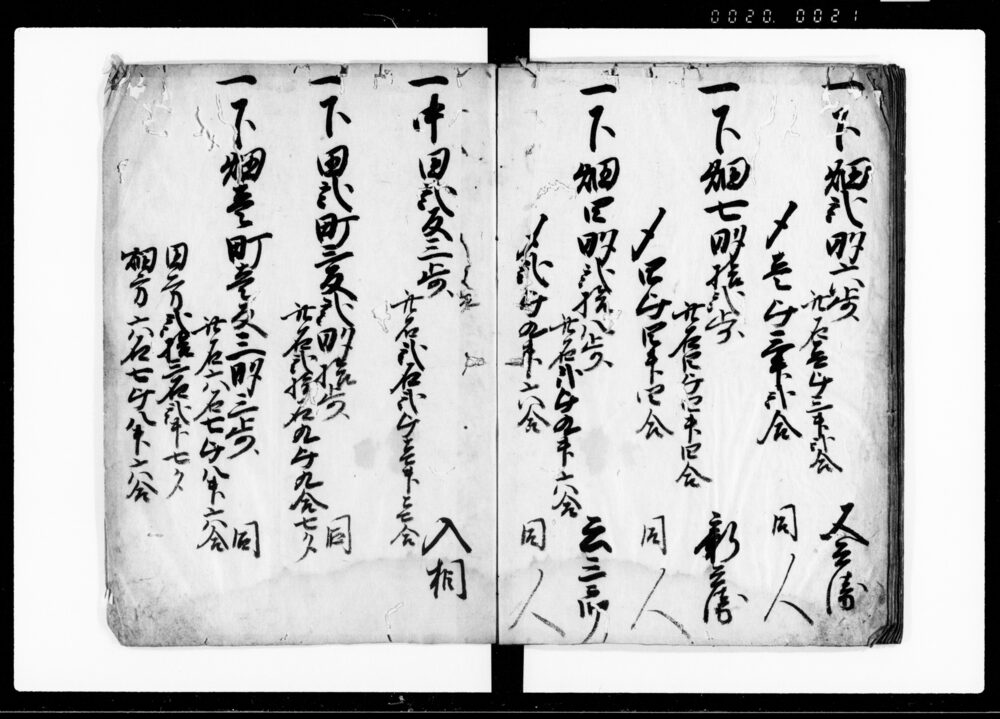 0020. 0021
一下畑弐畝六歩
此石壱斗三升弐合 又兵衛
〆壱斗三升弐合 同人
一下畑七畝拾弐歩
此石四斗四升四合 新兵衛
〆四斗四升四合 同人
一下畑四畝弐拾八歩
此石弐斗九升六合 三郎
〆弐斗九升六合 同人
一中田弐反三歩
此石弐石弐斗壱升壱合 入相
一下田弐町三反弐畝拾歩
此石弐拾石九斗九合七夕 同
一下畑壱町壱反三畝三歩
此石六石七斗八升六合 同
田方弐拾三石弐升七夕
畑方六石七斗八升六合